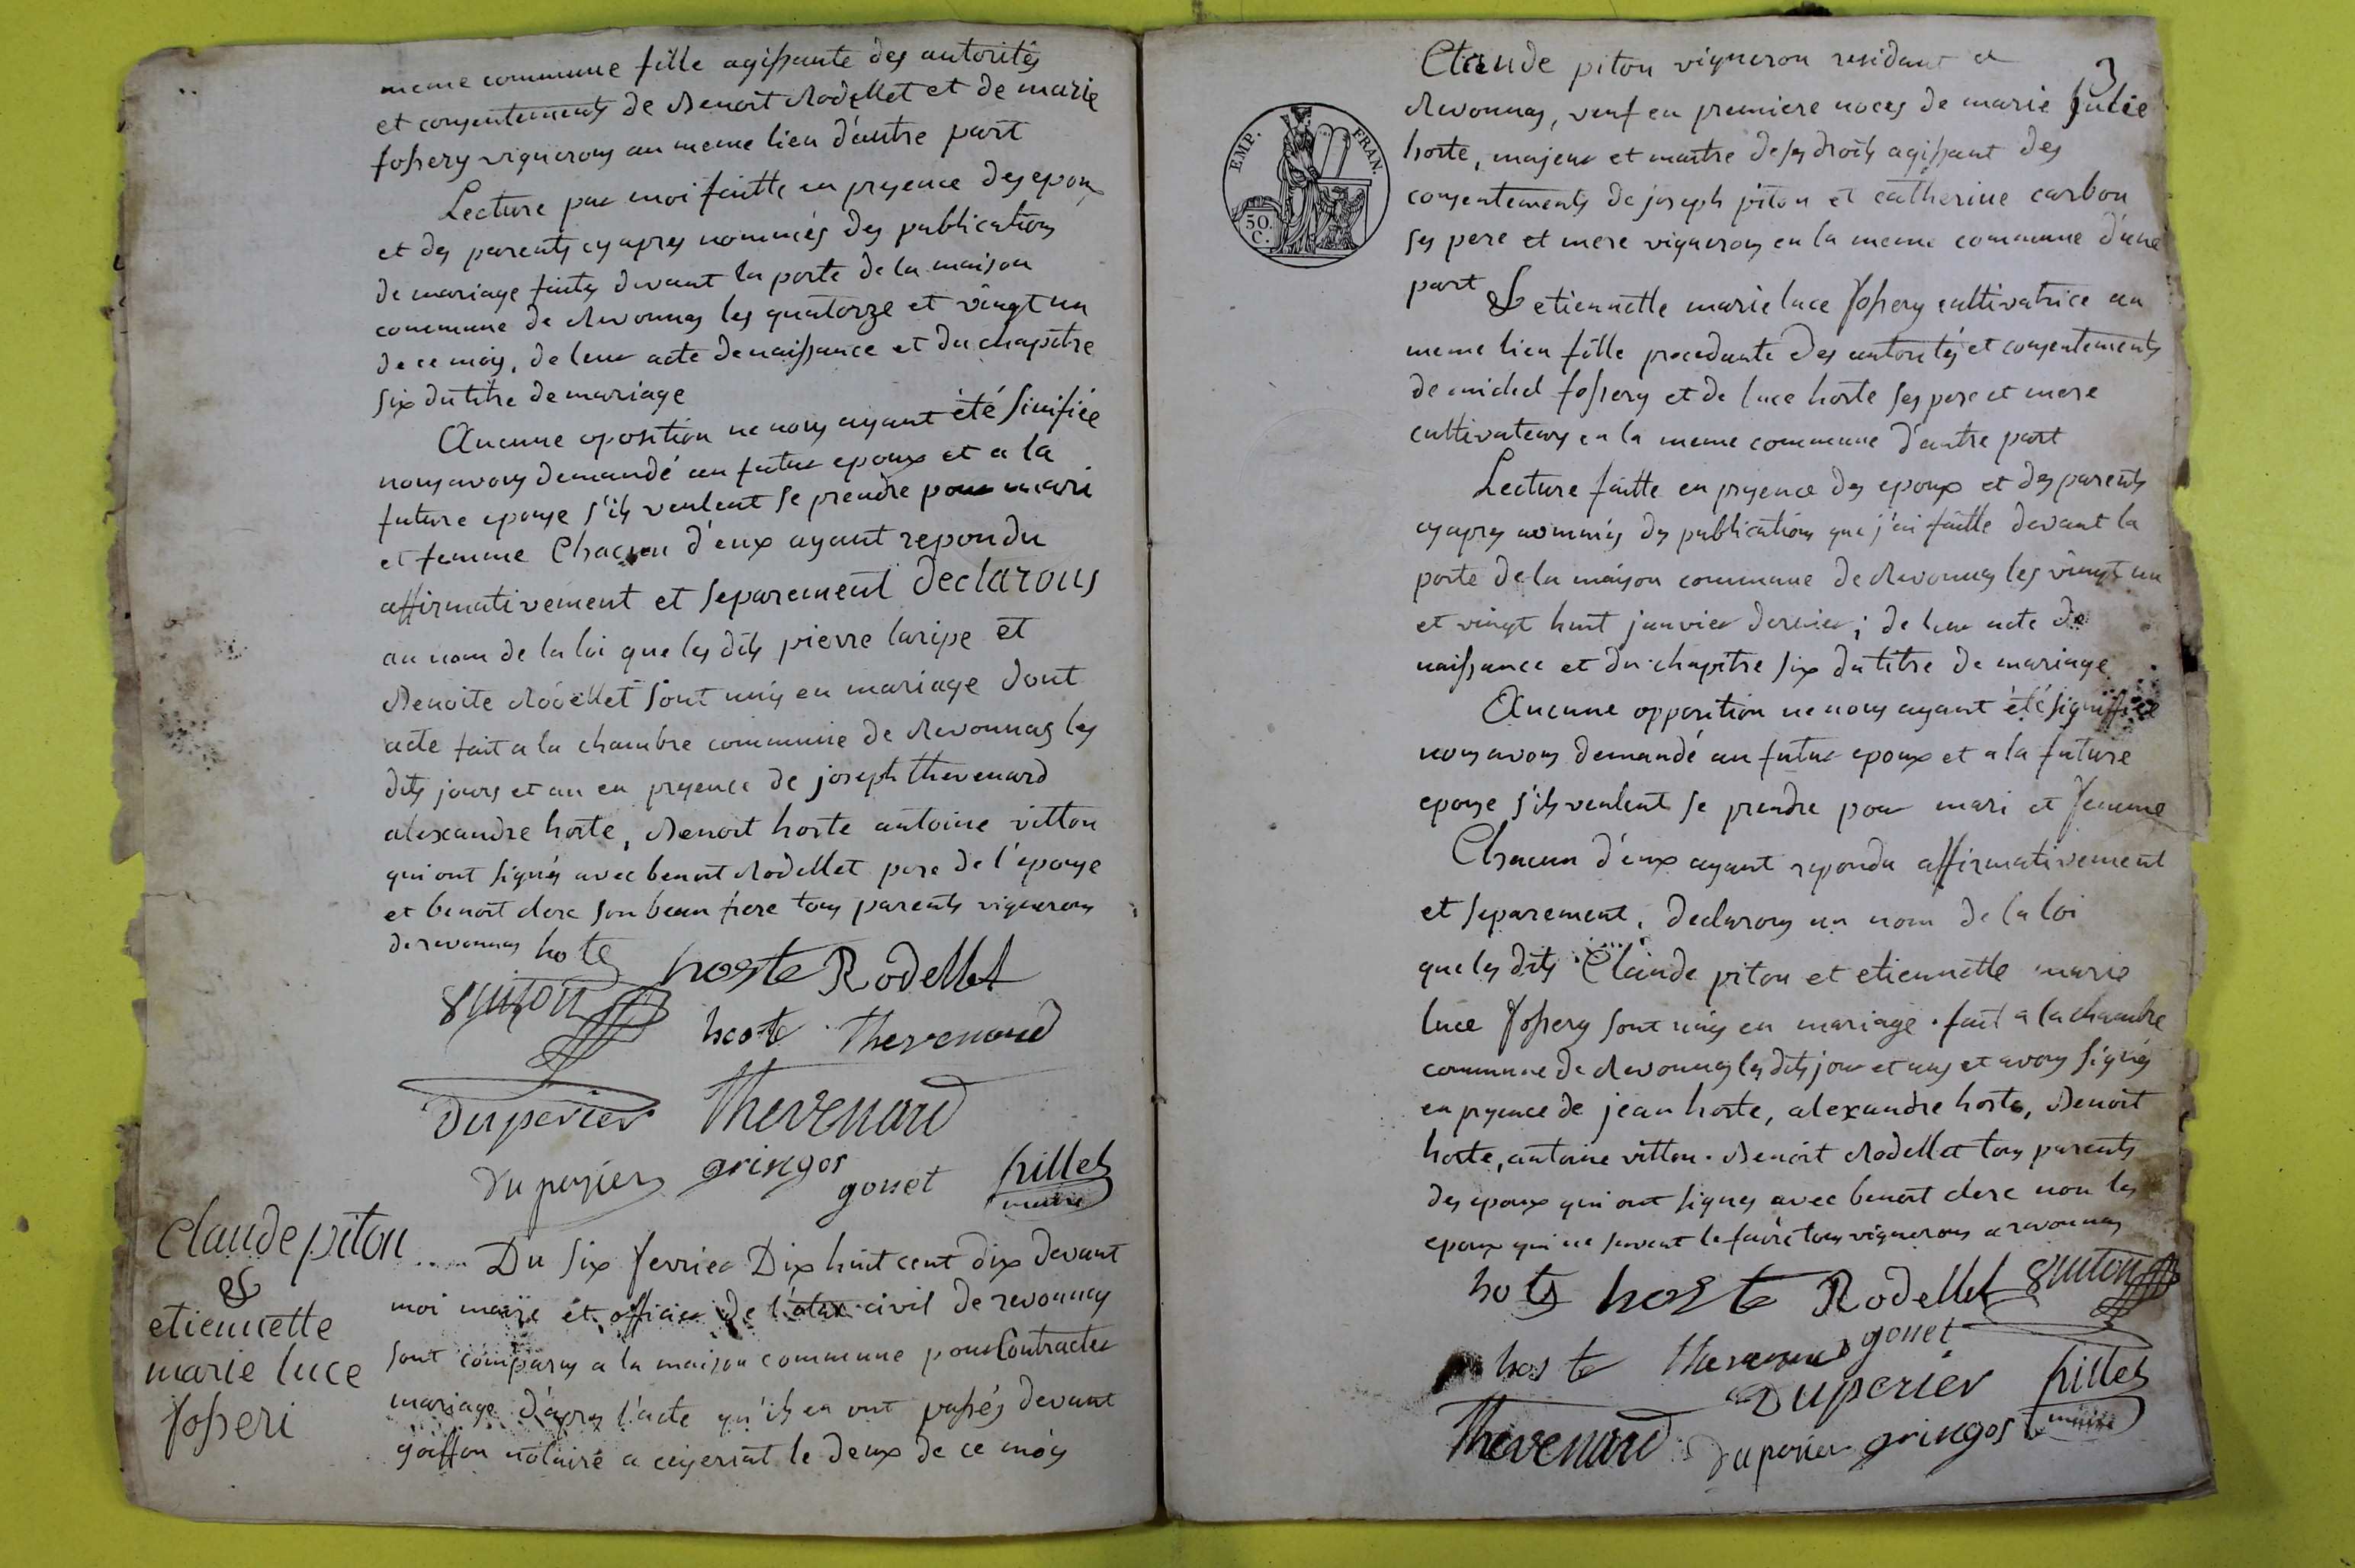 meme commune fille agissante des autorités
et consentements de Benoit Rodellet et de marie
fossery vignerons au meme lieu d'autre part
Lecture par moi faitte en presence des epoux
et des parents cy apres nommés des publications
de mariage faites devant la porte de la maison
commune de Revonnas les quatorze et vingt un
de ce mois, de leur acte de naissance et du chapitre
six du titre de mariage
Aucune oposition ne nous ayant été sinifiée
nous avons demandé au futur epoux et a la
future epouse s'ils veulent se prendre pour mari
et femme Chacun d'eux ayant repondu
affirmativement et separement declarons
au nom de la loi que les dits pierre laripe et
Benoite Rodellet sont unis en mariage dont
acte fait a la chambre commune de Revonnas les
dits jours et an en presence de joseph thevenard
alexandre hoste, Benoit hoste antoine vitton
qui ont signés avec benoit Rodellet pere de l'epouse
et benoit clerc son beau frere tous parents vignerons
de revonnas hote
hoste Rodellet
hoste thevenard
Duperier Thevenard
du perier gringos gonet hillet
maire
claude piton
&
etiennette
marie luce
fosseri
Du six fevrier Dix huit cent dix devant
moi maire et officier de l'état civil de revonnas
sont comparus a la maison commune pour Contracter
mariage d'apres l'acte qu'ils en ont passés devant
goiffon notaire a ceyseriat le deux de ce mois
3
Claude piton vigneron residant a
Revonnas, veuf en premiere noces de marie Julie
hoste, majeur et maitre de ses droits agissant des
consentements de joseph piton et catherine carbon
ses pere et mere vignerons en la meme commune d'une
part & etiennette marie luce fossery cultivatrice au
meme lieu fille procedante des autorités et consentements
de michel fossery et de luce hoste ses pere et mere
cultivateurs en la meme commune d'autre part
EMP. FRAN.
50.
C.
Lecture faitte en presence des epoux et des parents
cy apres nommés des publications que j'ai faitte devant la
porte de la maison commune de Revonnas les vingt un
et vingt huit janvier dernier; de leur acte de
naissance et du chapitre six du titre de mariage
Aucune opposition ne nous ayant été signiffiée
nous avons demandé au futur epoux et a la future
epouse s'ils veulent se prendre pour mari et femme
Chacun d'eux ayant repondu affirmativement
et separement, declarons au nom de la loi
que les dits Claude piton et etiennette marie
luce fossery sont unis en mariage. fait a la chambre
commune de Revonnas les dits jour et ans et avons signés
en presence de jean hoste, alexandre hoste, Benoit
hoste, antoine vitton. Benoit Rodellet tous parents
des epoux qui ont signes avec benoit clerc non les
epoux qui ne savent le faire tous vignerons a revonnas
hote hoste Rodellet
hoste thevenard gonet
Duperier hillet
Thevenard du perier gringos maire